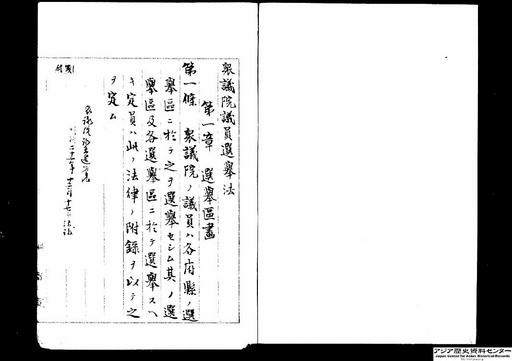 衆議院議員選擧法
第一章 選擧區畫
第一條 衆議院ノ議員ハ各府縣ノ選
擧區ニ於テ之ヲ選擧セシム其ノ選
擧區及各選擧區ニ於テ選擧スヘ
キ定員ハ此ノ法律ノ附錄ヲ以テ之
ヲ定ム
アジア歴史資料センター
Japan Center for Asian Historical Records